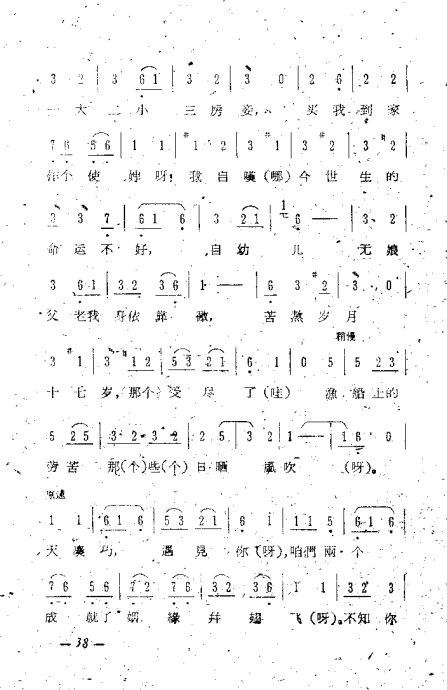 3 2 | 3 6 1 | 3 2 | 3 0 | 2 6 | 2 2 |
一大二小 三房妾, 买我到家
7 6 5 6 | 1 1 | #1 2 | 3 1 | 3 #2 | 3 2
作个使 婢呀! 我自叹(哪)今世生的
3 3 7 | 6 1 6 | 3 2 1 | 6 — | 3 2 |
命运不好, 自幼儿 无娘
3 6 1 | 3 2 3 6 | 1 — | 6 3 #2 | 3 6 |
父老我 身依靠 苦熬岁月
稍慢
3 #1 | 3 1 2 | 5 3 2 1 | 6 1 | 0 5 | 5 2 3 |
十七岁, 那个受尽了(哇) 漁船上的
5 2 5 | 3 2 3 2 | 2 5 | 3 2 | 1 — | 1 6 0 |
劳苦 那(个)些(个)日晒 風吹 (呀)。
原速
1 1 | 6 1 6 | 5 3 2 1 | 6 1 | 1 1 5 | 6 1 6 |
天凑巧, 遇見 你(呀),咱們兩个
7 6 5 6 | 7 2 7 6 | 7 6 3 2 | 3 6 | 1 | 3 2 3 |
成就了姻緣幷翅 飞(呀)。不知你
— 38 —